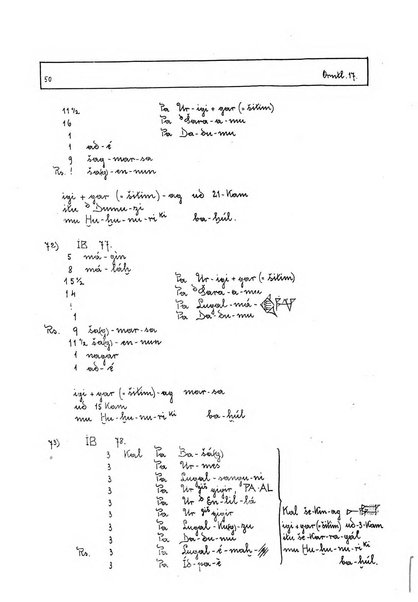 50 Orntl. 17.
11 ½ Pa Ur-igi+gar (=šitim)
16 Pa ᵈŠara-a-mu
1 Pa Da-du-mu
1 ad-é
9 šag-mar-sa
Rs. ! ša(g)-en-nun
igi+gar (=šitim)-ag ud 21-Kam
itu ᵈDumu-zi
mu Hu-hu-nu-ri ᴷⁱ ba-ḫúl.
72) IB 77.
5 má-gin
8 má-láḫ
15 ½ Pa Ur-igi+gar (=šitim)
14 Pa ᵈŠara-a-mu
! Pa Lugal-má-
1 Pa Da-du-mu
Rs. 9 ša(g)-mar-sa
11 ½ ša(g)-en-nun
1 nagar
1 ad-é
igi+gar (=šitim)-ag mar-sa
ud 15 Kam
mu Hu-hu-nu-ri ᴷⁱ ba-ḫúl
73) IB 78.
3 Kal Pa Ba-ša(g)
3 Pa Ur-mes
3 Pa Lugal-sangu-ni
3 Pa Ur ᵍⁱˢ gigir, PA-AL
3 Pa Ur ᵈEn-lil-lá
3 Pa Ur ᵍⁱˢ gigir
3 Pa Lugal-Ku(g)-zu
3 Pa Da-du-mu
Rs. 3 Pa Lugal-é-maḫ-
3 Pa Íb-pa-è
Kal še-kin-ag
igi+gar (=šitim) ud-3-Kam
itu še-kar-ra-gál
mu Hu-hu-nu-ri ᴷⁱ
ba-ḫúl.